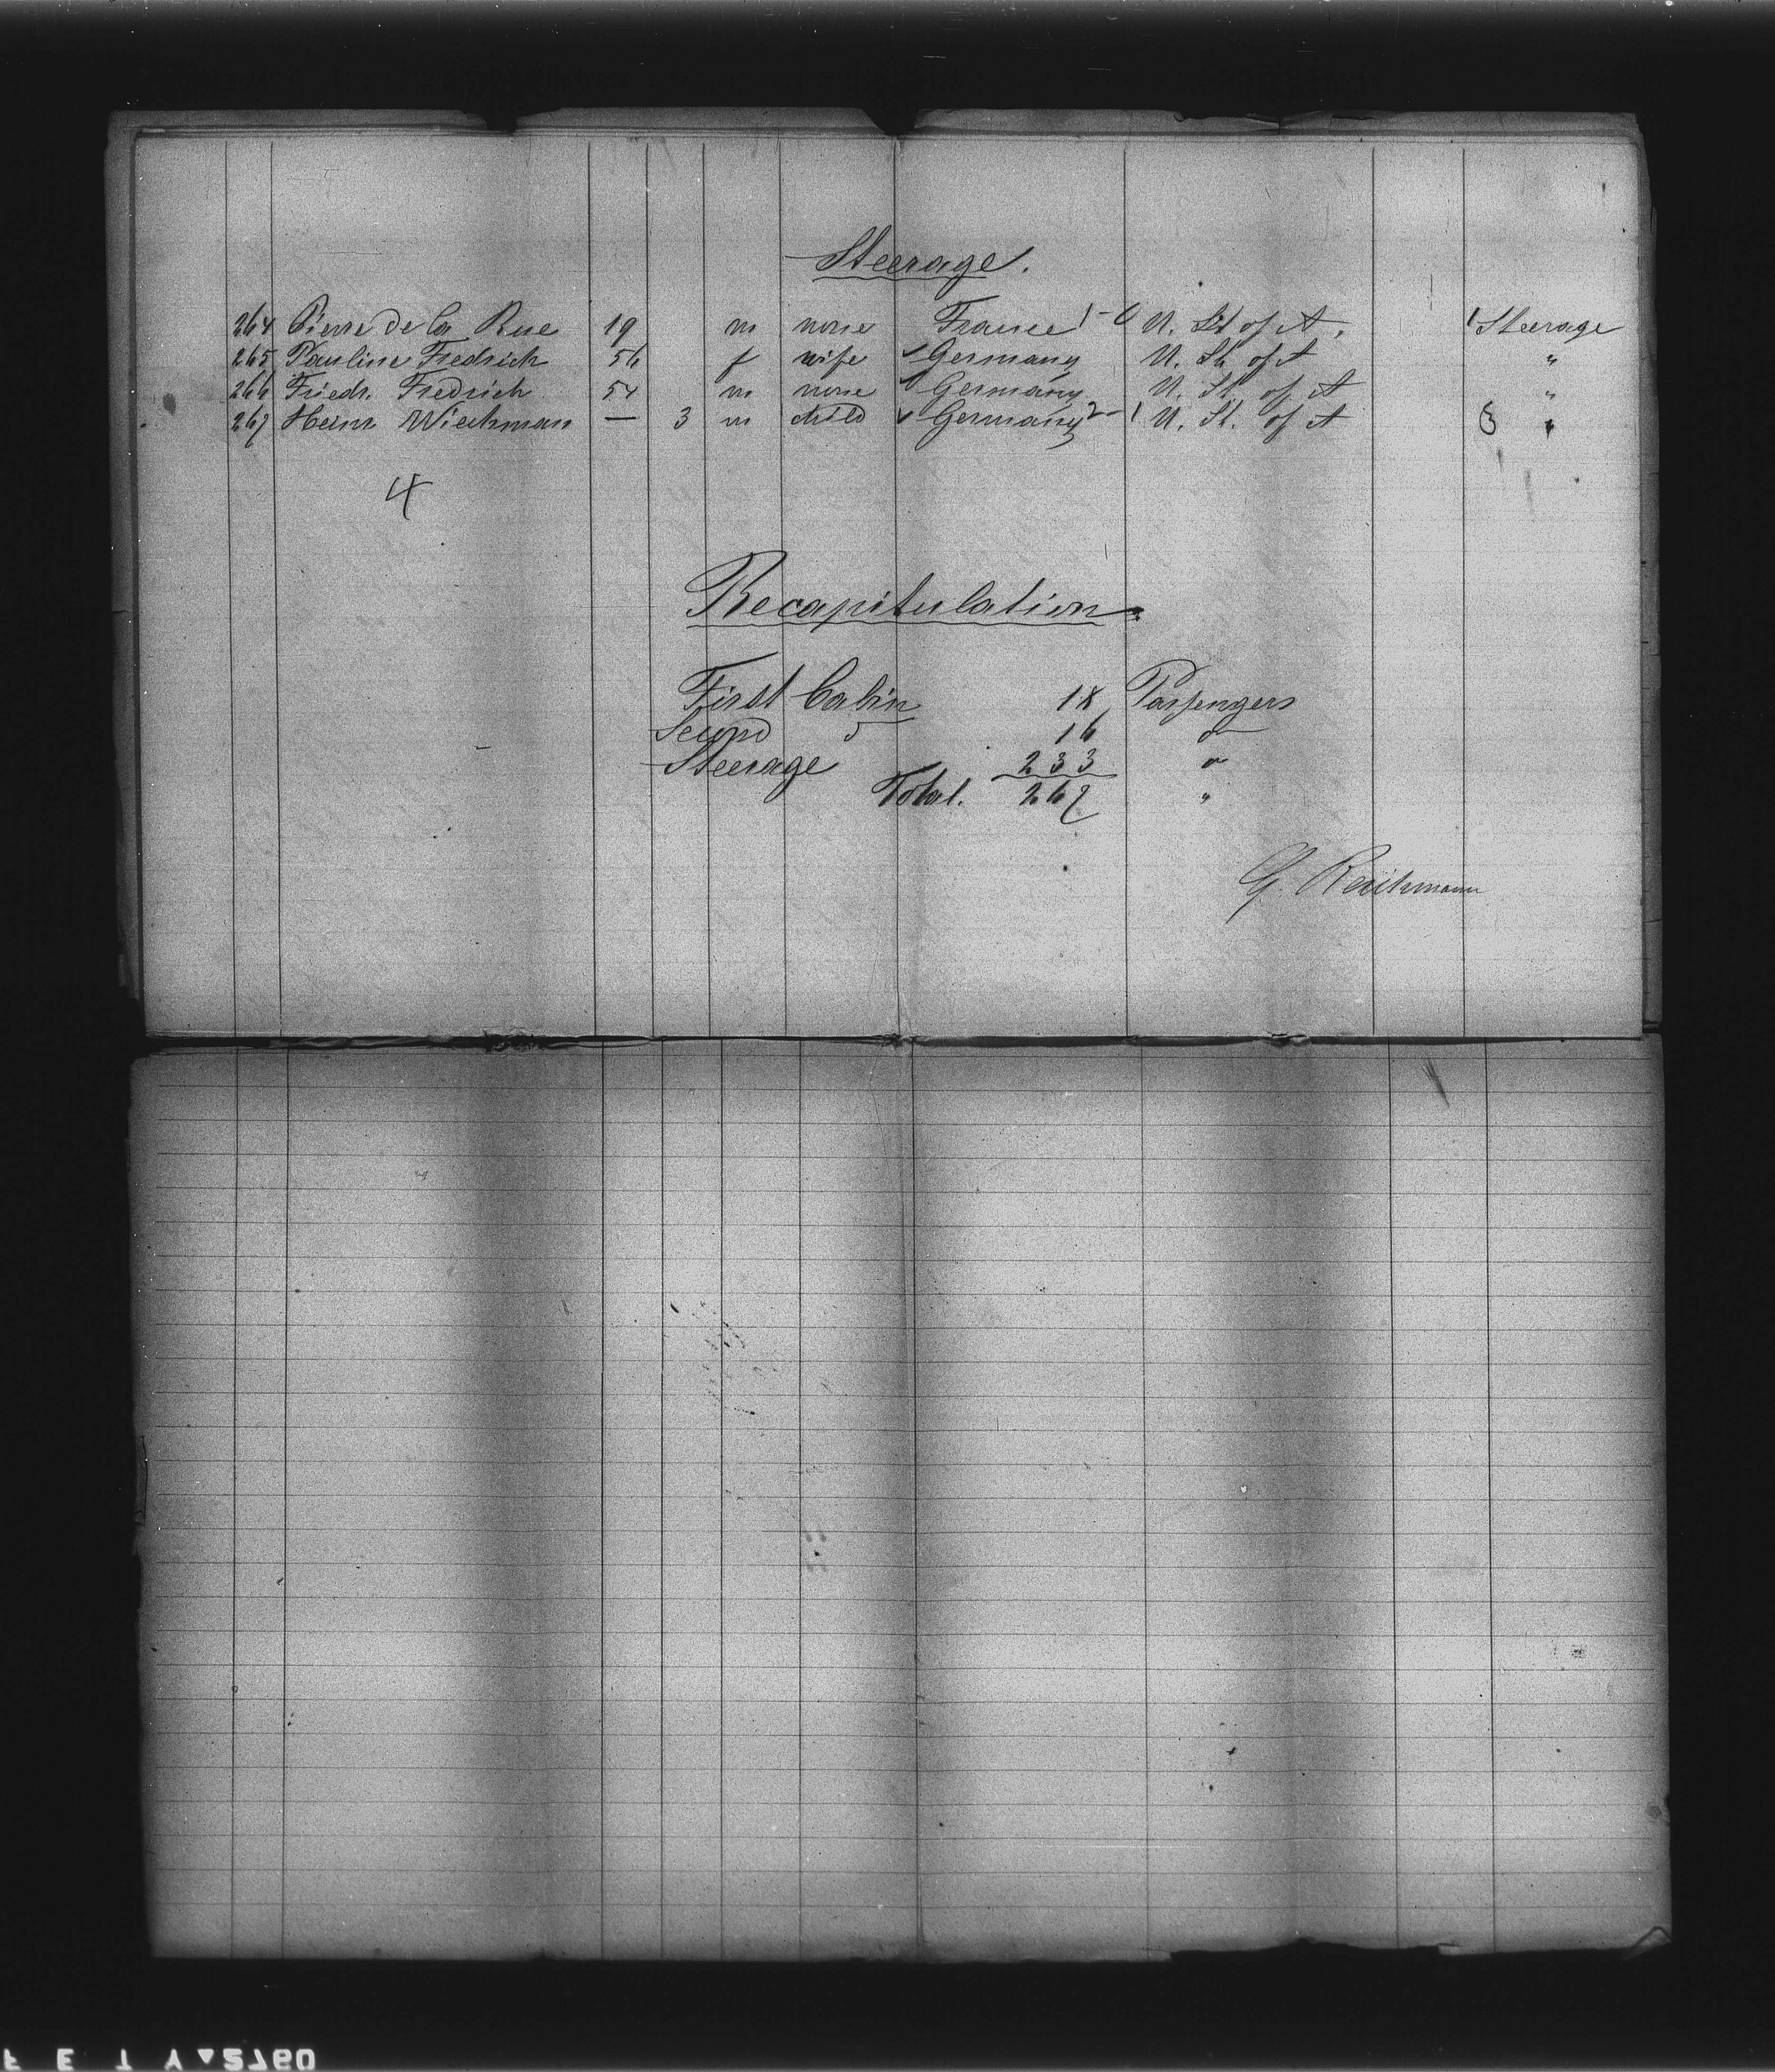 Steerage.
264 Pierre de la Rue 19 m none France 1-0 U. St of A. 1 Steerage
265 Pauline Fredrich 56 f wife Germany U. St. of A "
266 Friedr. Fredrich 54 m none Germany U. St. of A "
267 Heinr Wiechman — 3 m child Germany 2-1 U. St. of A 3 "
4
Recapitulation.
First Cabin 18 Passengers
Second 16 "
Steerage 233 "
Total. 267 "
G. Reichmann